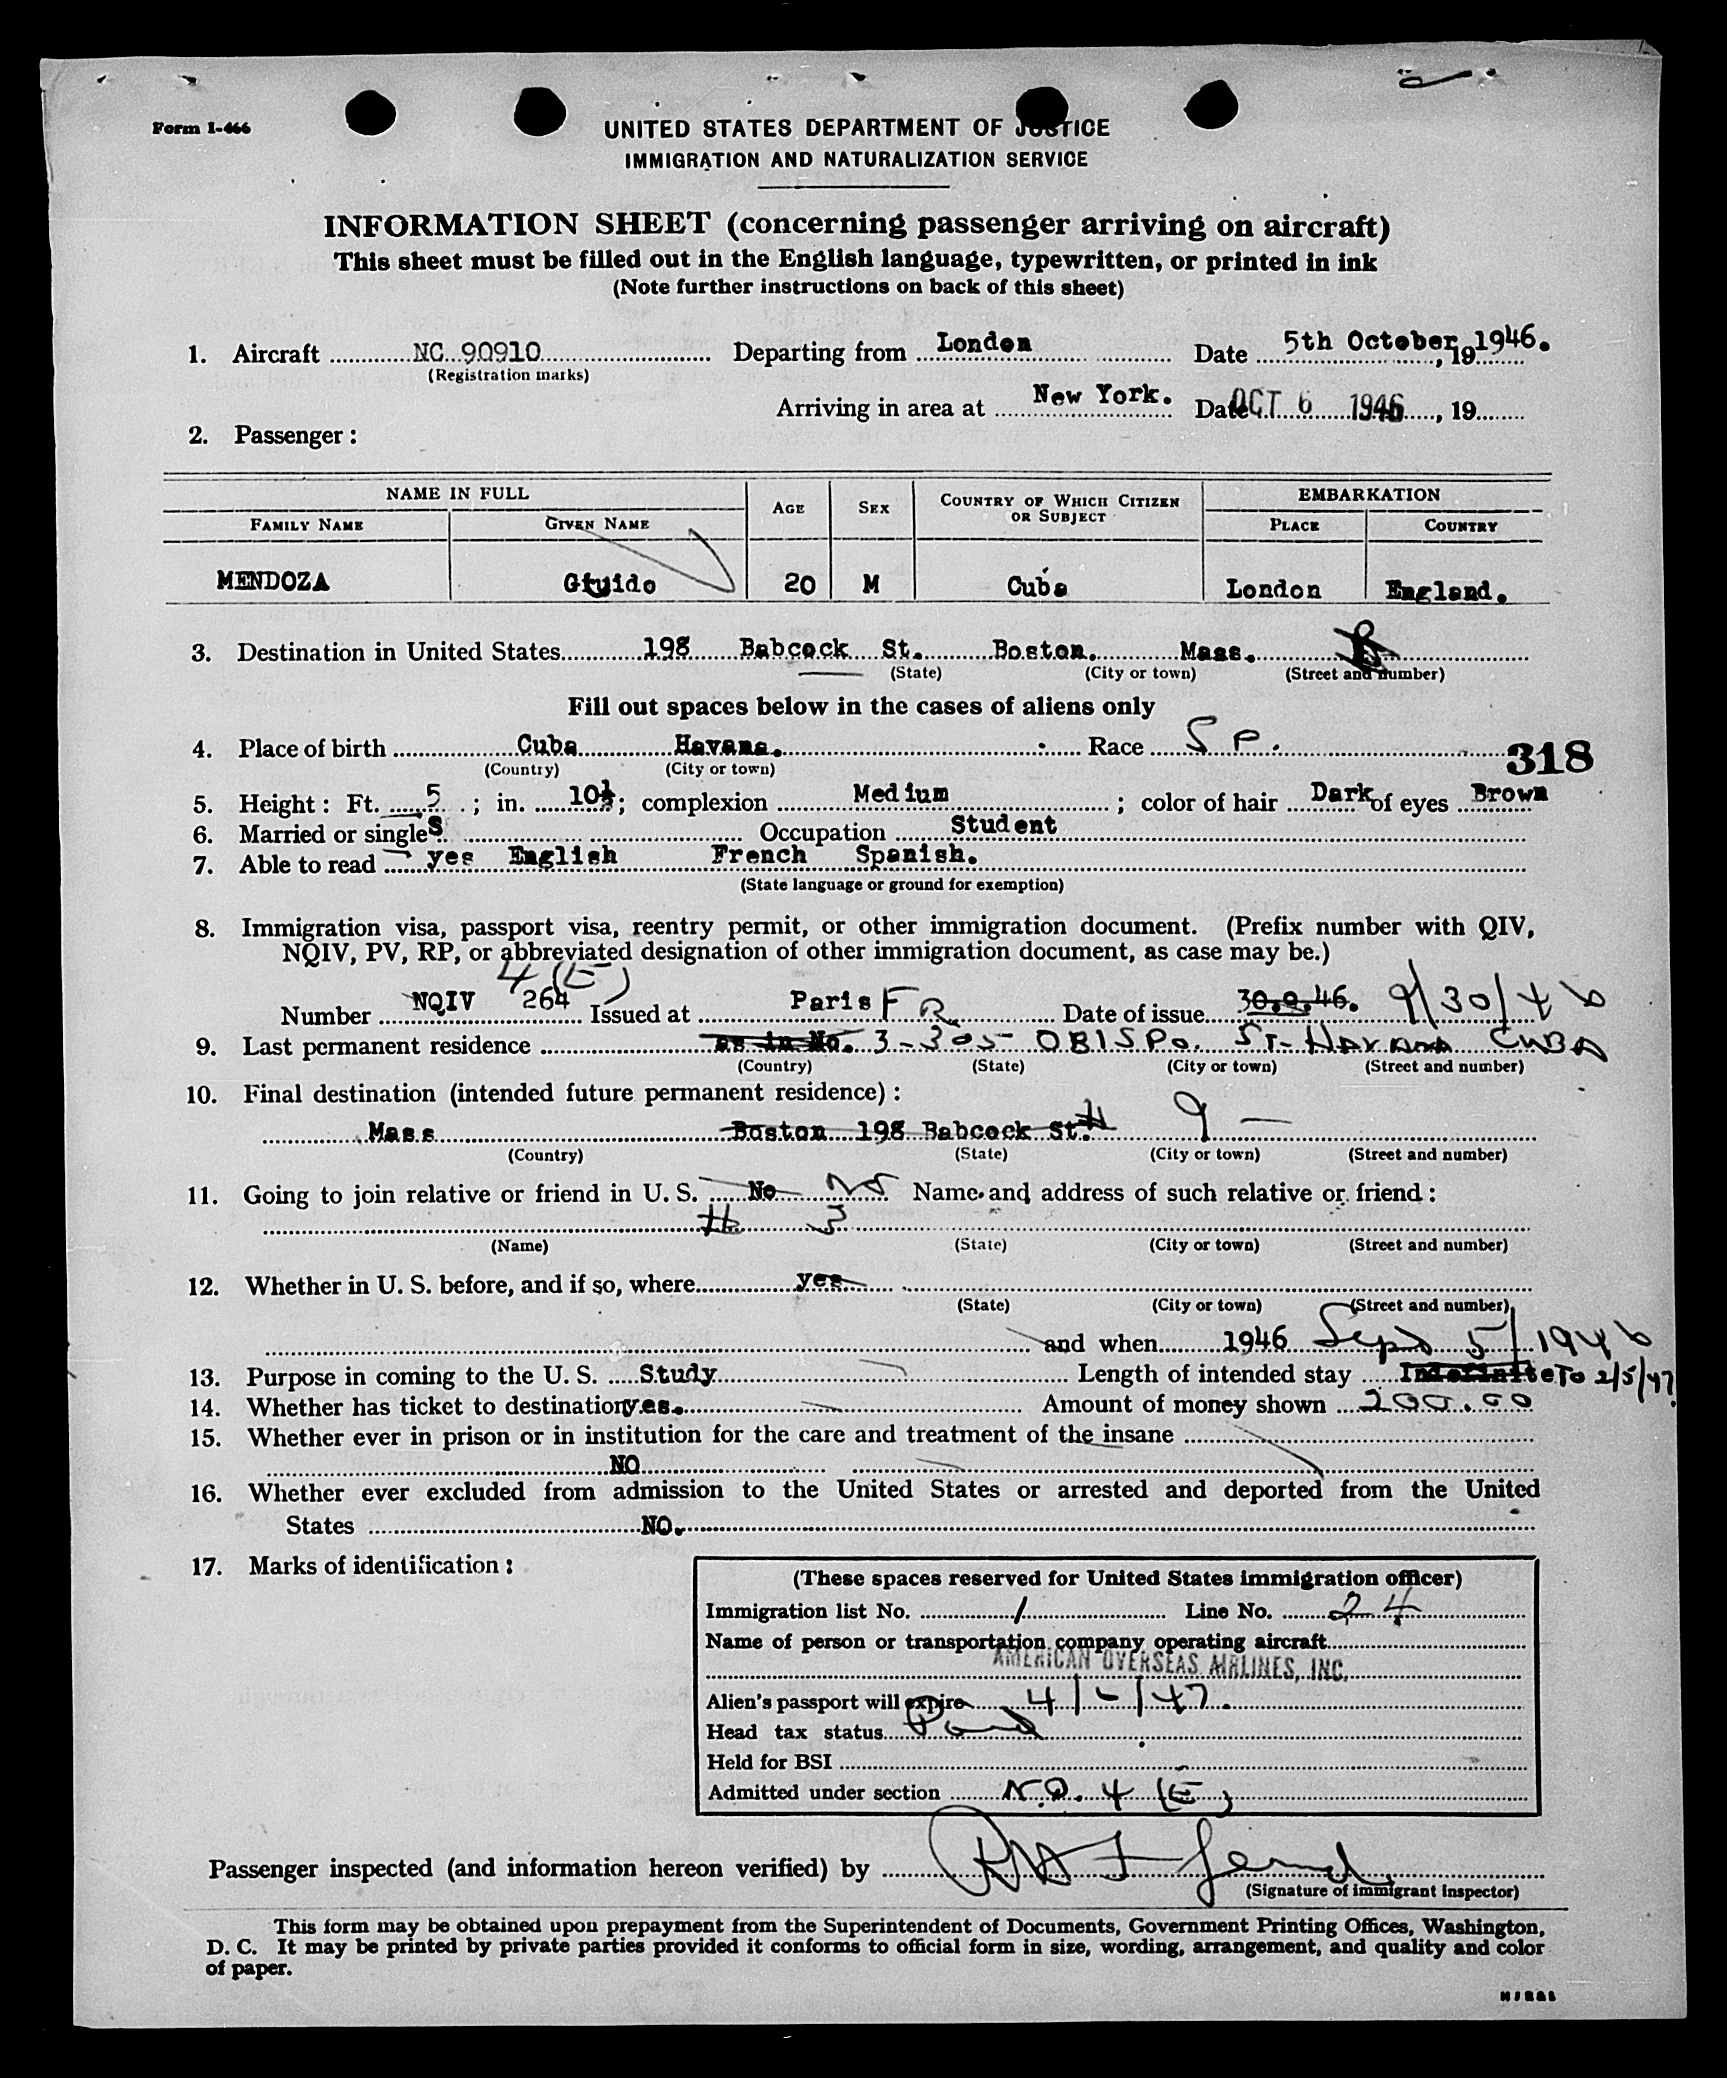 Form I-466
UNITED STATES DEPARTMENT OF JUSTICE
IMMIGRATION AND NATURALIZATION SERVICE
INFORMATION SHEET (concerning passenger arriving on aircraft)
This sheet must be filled out in the English language, typewritten, or printed in ink
(Note further instructions on back of this sheet)
1. Aircraft NC 90910 Departing from London Date 5th October, 19 1946.
(Registration marks)
Arriving in area at New York. Date OCT 6 1946, 19
2. Passenger:
NAME IN FULL AGE SEX COUNTRY OF WHICH CITIZEN OR SUBJECT EMBARKATION
FAMILY NAME GIVEN NAME PLACE COUNTRY
MENDOZA Guido 20 M Cuba London England.
3. Destination in United States 198 Babcock St. Boston. Mass.
(State) (City or town) (Street and number)
Fill out spaces below in the cases of aliens only
4. Place of birth Cuba Havana. Race SP. 318
(Country) (City or town)
5. Height: Ft. 5; in. 10½; complexion Medium; color of hair Dark of eyes Brown
6. Married or single S Occupation Student
7. Able to read yes English French Spanish.
(State language or ground for exemption)
8. Immigration visa, passport visa, reentry permit, or other immigration document. (Prefix number with QIV,
NQIV, PV, RP, or abbreviated designation of other immigration document, as case may be.)
4 (E)
Number NQIV 264 Issued at Paris FR Date of issue 30.9.46. 9/30/46
9. Last permanent residence as in No. 3 - 305 OBISPO. ST- HAVANA CUBA
(Country) (State) (City or town) (Street and number)
10. Final destination (intended future permanent residence):
Mass Boston 198 Babcock St. # 9 -
(Country) (State) (City or town) (Street and number)
11. Going to join relative or friend in U. S. No Name and address of such relative or friend:
# 3
(Name) (State) (City or town) (Street and number)
12. Whether in U. S. before, and if so, where yes
(State) (City or town) (Street and number)
and when 1946 Sept 5/1946
13. Purpose in coming to the U. S. Study Length of intended stay Indefinite To 2/5/47
14. Whether has ticket to destination yes. Amount of money shown 200.00
15. Whether ever in prison or in institution for the care and treatment of the insane
NO
16. Whether ever excluded from admission to the United States or arrested and deported from the United
States NO.
17. Marks of identification:
(These spaces reserved for United States immigration officer)
Immigration list No. 1 Line No. 24
Name of person or transportation company operating aircraft
AMERICAN OVERSEAS AIRLINES, INC.
Alien's passport will expire 4/-/47.
Head tax status Paid
Held for BSI
Admitted under section N.Q. 4 (E)
Passenger inspected (and information hereon verified) by
(Signature of immigrant inspector)
This form may be obtained upon prepayment from the Superintendent of Documents, Government Printing Offices, Washington,
D. C. It may be printed by private parties provided it conforms to official form in size, wording, arrangement, and quality and color
of paper.